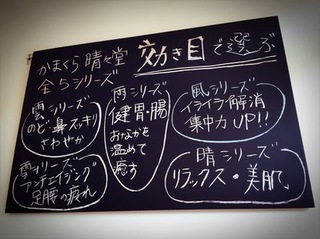 かまくら 晴々堂
全5シリーズ
効き目で選ぶ
雲シリーズ
のど・鼻スッキリ
さわやか
雨シリーズ
健胃・腸
おなかを
温めて
癒す
風シリーズ
イライラ解消
集中力UP!!
雪シリーズ
アンチエイジング
足腰の疲れ
晴シリーズ
リラックス・美肌